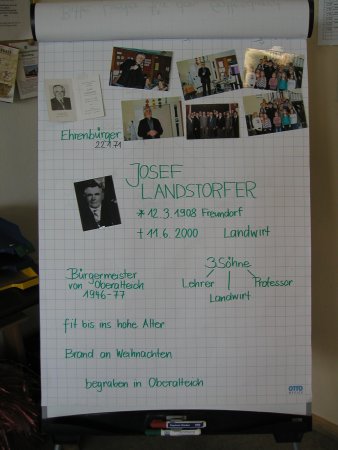 Ehrenbürger
22.1.71
JOSEF
LANDSTORFER
* 12.3.1908 Freundorf
† 11.6.2000 Landwirt
Bürgermeister
von Oberalteich
1946-77
3 Söhne
Lehrer
Landwirt
Professor
fit bis ins hohe Alter
Brand an Weihnachten
begraben in Oberalteich
OTTO